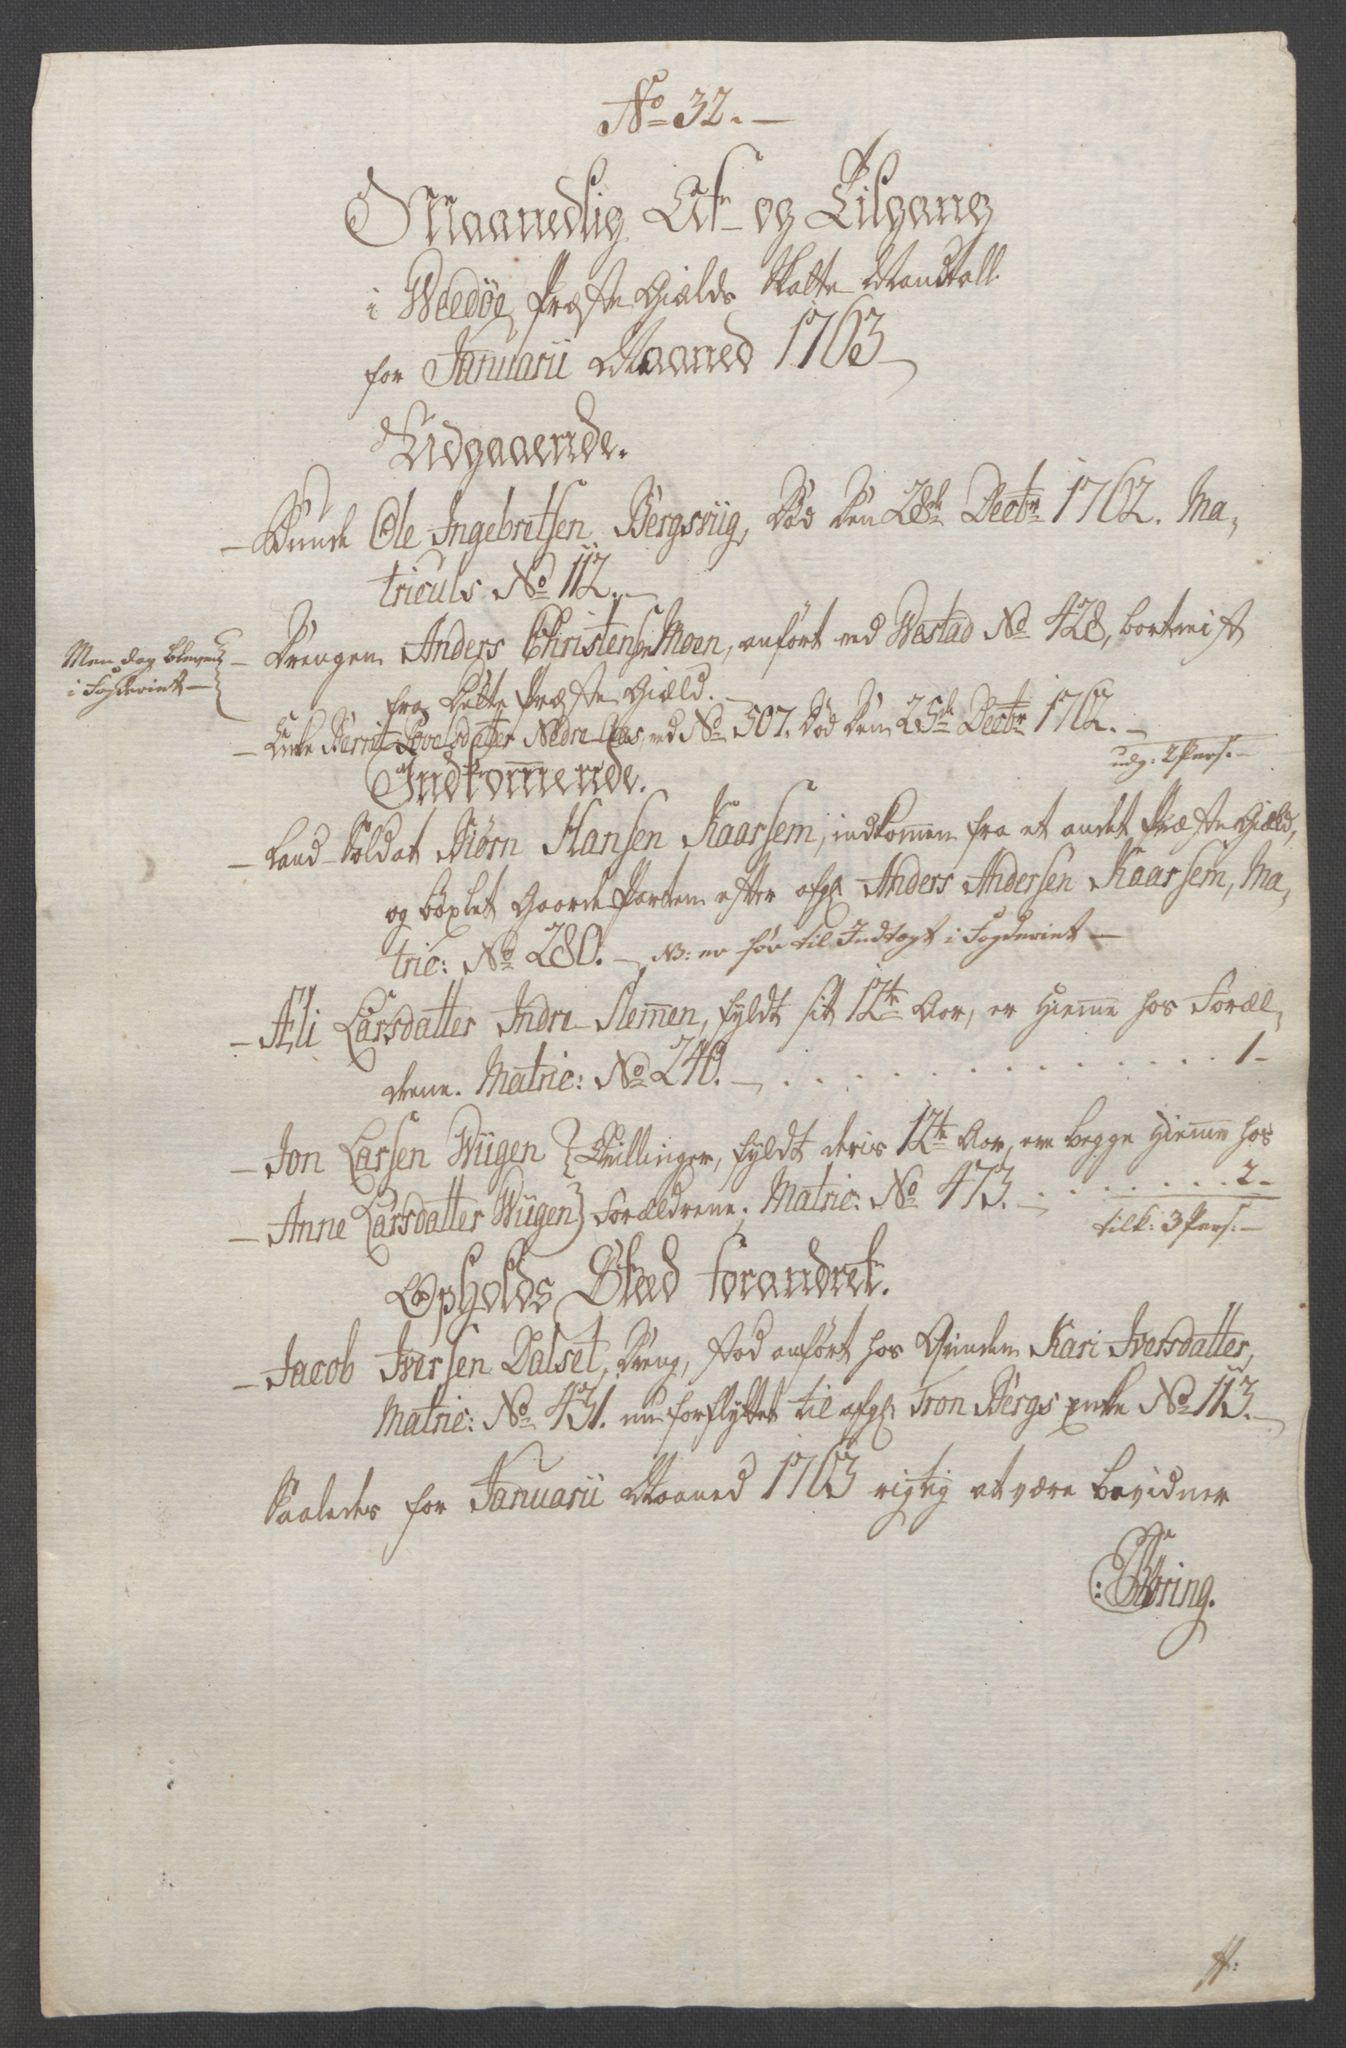 No 32. —
Maanedlig Af- og Tilgang
i Weedøe Præste Gields Skatte Mandtall
for Januarii Maaned 1763
Udgaaende.
— Bunde Ole Ingebretsen Bergsviig, død den 28de Decbr 1762. Ma-
triculs No 112. —
Men dog bleven
i Fogderiet —
— Drengen Anders Christensen Moen, anført ved Westad No 428, bortreist
fra dette Præste Gield. —
— Enke Berrit Povelsdatter Nedre Aas, ved No 507. død den 25de Decbr 1762. —
udg: 2 Pers. —
Indkommende.
— Land-Soldat Biørn Hansen Kaarsem, indkommen fra et andet Præste Gield,
og böxlet Gaarde Parten efter afg. Anders Andersen Kaarsem, Ma-
tric: No 280. — NB: er før til Indtægt i Fogderiet —
— Æli Larsdatter Indre Slemmen, fyldt sit 12te Aar, er Hiemme hos Foræl-
drene. Matric: No 240. — . . . . . . . . . . . . 1 —
— Jon Larsen Wiigen } Tvillinger, fyldt deris 12te Aar, ere begge Hiemme hos
— Anne Larsdatter Wiigen } Forældrene. Matric: No 473. — . . . . . . . 2 —
tilk: 3 Pers. —
Opholds Stæd forandret.
— Jacob Iversen Dalset, Dreng, stod anført hos Qvinden Kari Iversdatter,
Matric: No 431. nu forflyttet til afg. Tron Bergs enke No 113. —
Saaledes for Januarii Maaned 1763 rigtig at være bevidner